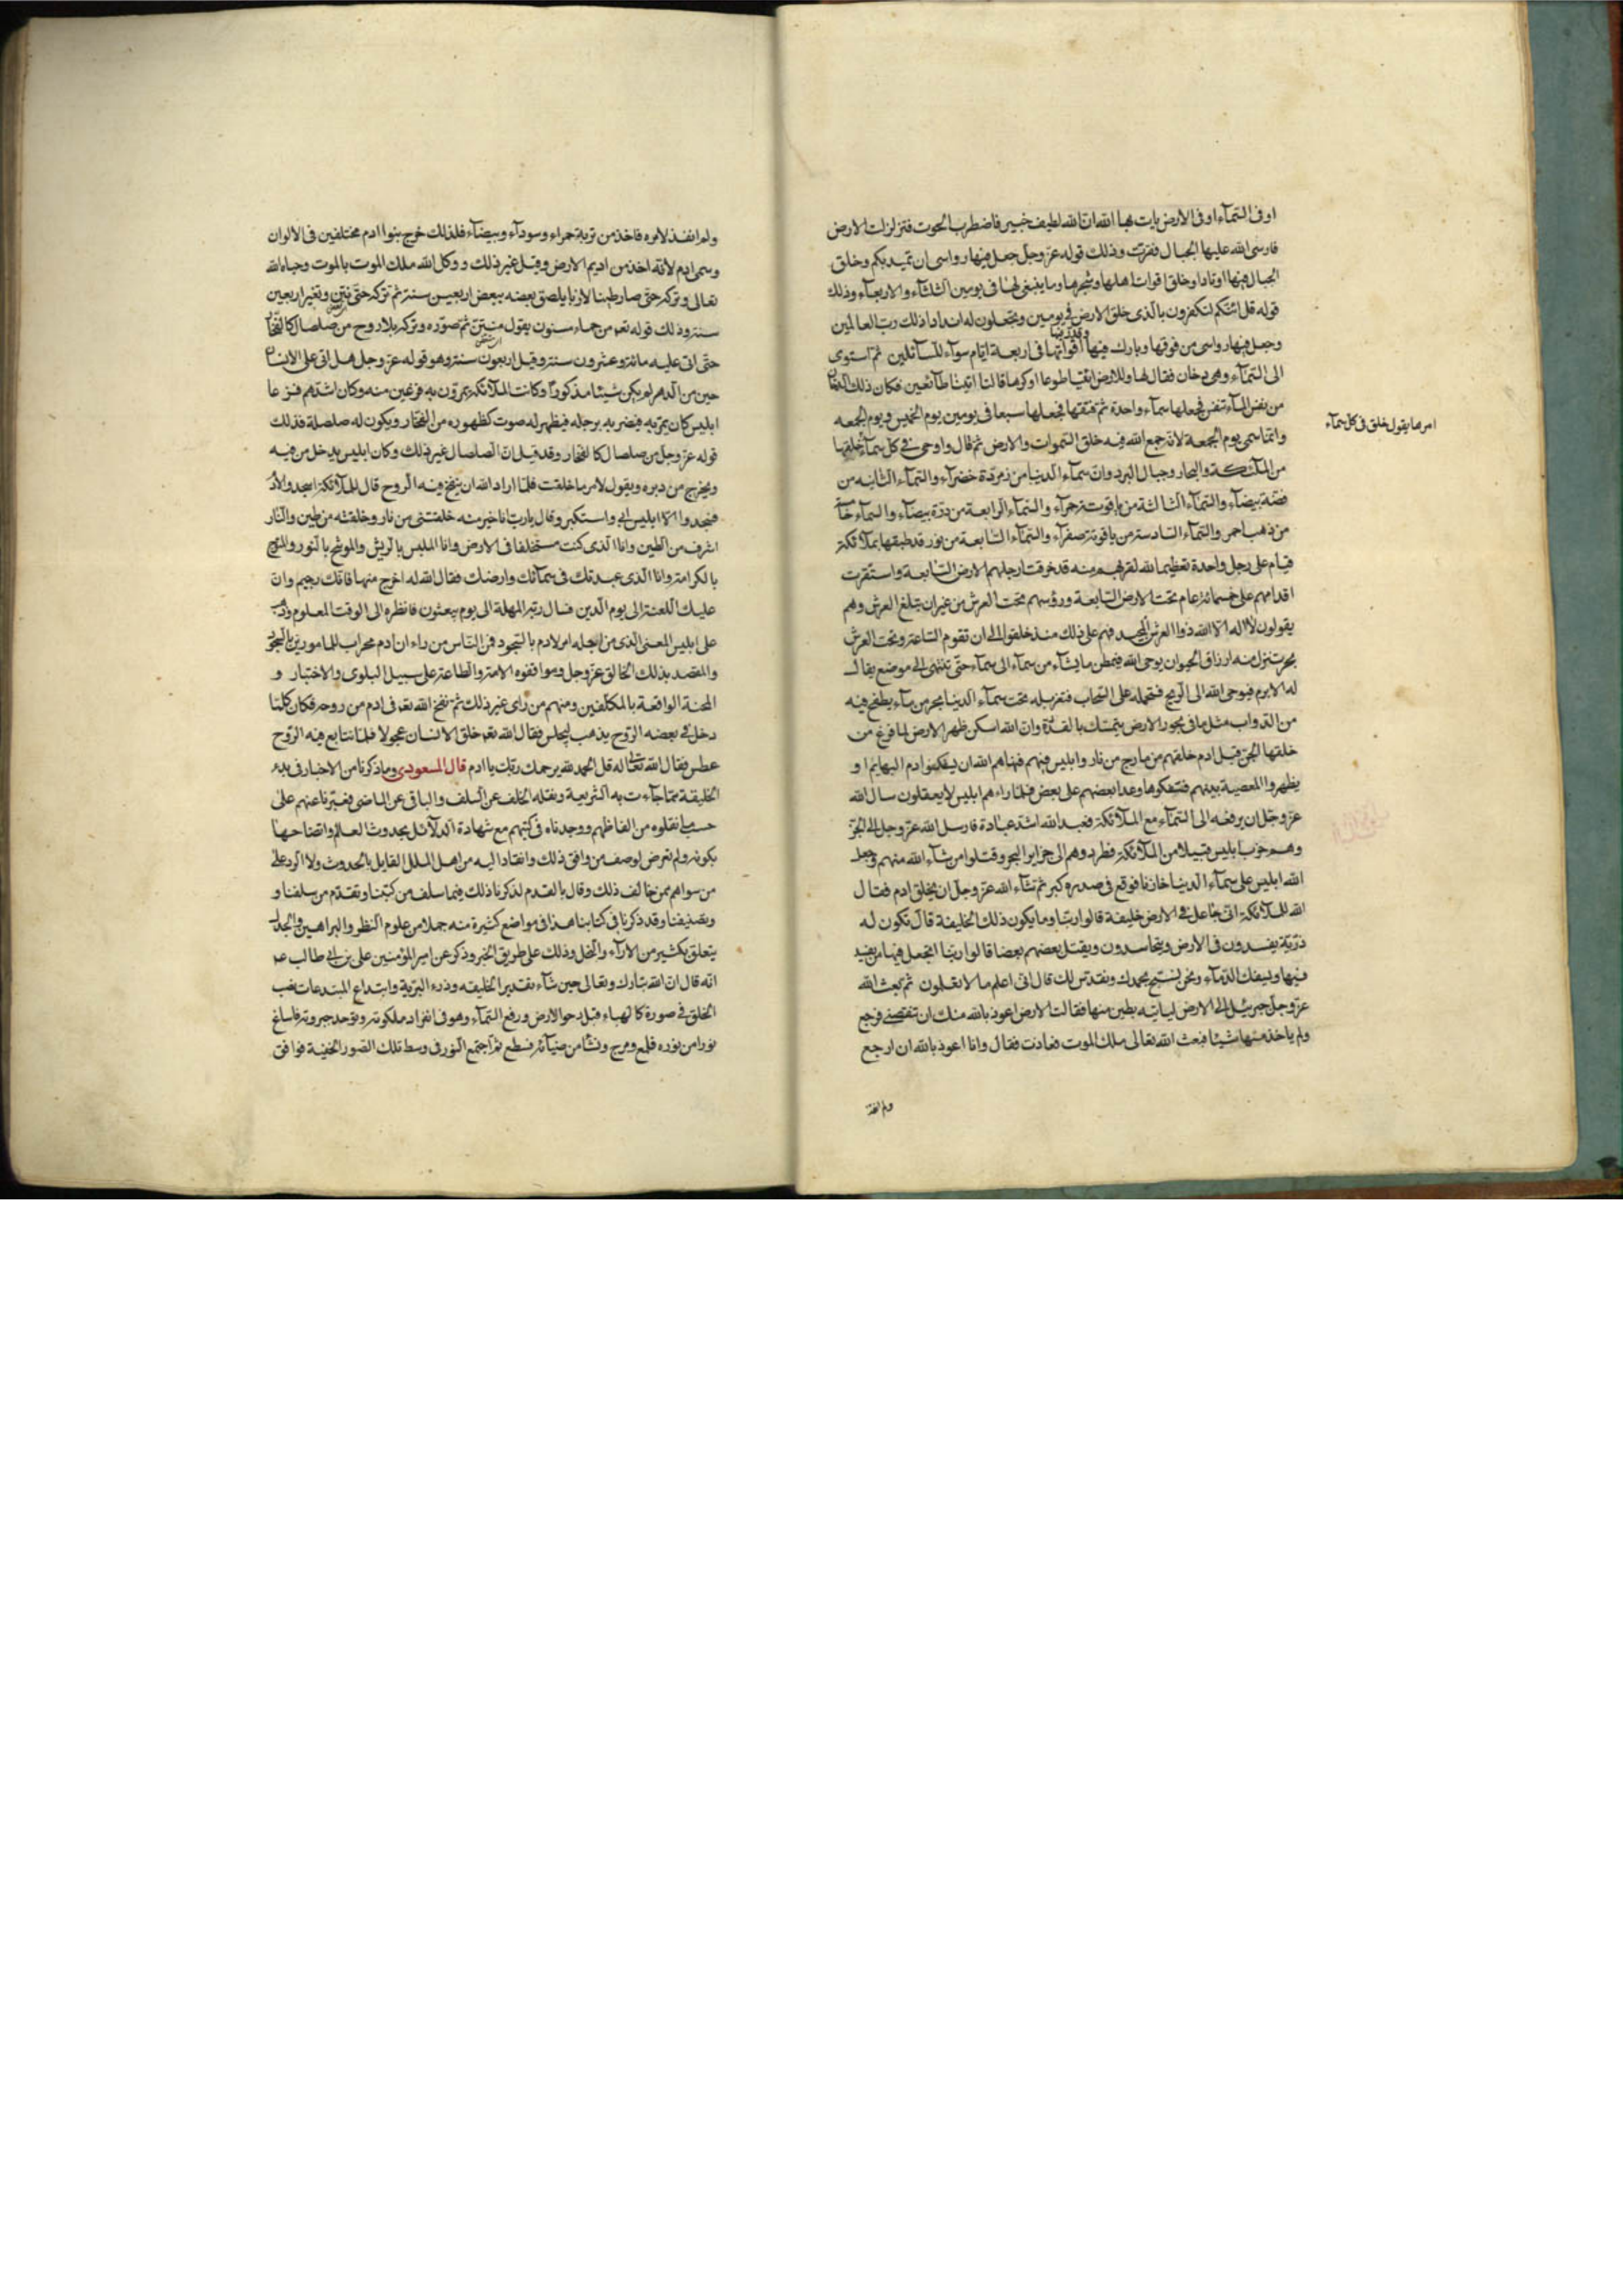 او فى السمآء او فى الارض يات بها الله ان الله لطيف خبير فاضطرب الحوت فتزلزلت الارض
فارسى الله عليها الجبال فقرّت وذلك قوله عزّ وجلّ جعل فيها رواسى ان تميد بكم وخلق
الجبال فيها اوتادا وخلق اقوات اهلها وشجرها وما ينبغى لها فى يومين الثلثآء والاربعآء وذلك
قوله قل ائنّكم لتكفرون بالّذى خلق الارض فى يومين وتجعلون له اندادا ذلك ربّ العالمين
وجعل فيها رواسى من فوقها وبارك فيها وقدر فيها أقواتها فى اربعة ايّام سوآء للسآئلين ثم استوى
الى السمآء وهى دخان فقال لها وللارض ائتيا طوعا او كرها قالتا اتينا طآئعين فكان ذلك الدخان
من نفس المآء تنفس فجعلها سمآء واحدة ثم فتقها فجعلها سبعا فى يومين يوم الخميس ويوم الجمعه
وانّما سمى يوم الجمعة لانّه جمع الله فيه خلق السموات والارض ثم قال واوحى فى كل سمآء خلقها
امرها يقول خلق فى كل سمآء
من الملئكة والبحار وجبال البرد وان سمآء الدنيا من زمردة خضرآء والسمآء الثانيه من
فضة بيضآء والسمآء الثالثة من ياقوتة حمرآء والسمآء الرابعة من درّة بيضآء والسمآء خامسة
من ذهب احمر والسمآء السادسة من ياقوتة صفرآء والسمآء السابعة من نور قد طبقها بملآئكة
قيام على رجل واحدة تعظيما لله لقربهم منه قد خرقت ارجلهم الارض السابعة واستقرت
اقدامهم على خمسمائة عام تحت الارض السابعة ورؤسهم تحت العرش من غير ان تبلغ العرش وهم
يقولون لا اله الا الله ذو العرش المجيد فهم على ذلك منذ خلقوا الى ان تقوم الساعة وتحت العرش
بحر تنزل منه ارزاق الحيوان يوحى الله فيمطر ما يشآء من سمآء الى سمآء حتّى تنتهى الى موضع يقال
له الابرم فيوحى الله الى الريح فتحمله على السحاب فتغربله تحت سمآء الدنيا بحر من مآء يطفح فيه
من الدواب مثل ما فى بحور الارض يتمسك بالقدرة وان الله اسكن ظهر الارض لما فرغ من
خلقها الجنّ قبل ادم خلقهم من مارج من نار وابليس فيهم فنهاهم الله ان يسفكوا دم البهايم او
يظهروا المعصية بينهم فسفكوها وعدا بعضهم على بعض فلمّا راءهم ابليس لا يعقلون سال الله
عزّ وجلّ ان يرفعه الى السمآء مع الملآئكة فعبد الله اشد عبادة فارسل الله عزّ وجلّ الى الجنّ
وهم حزب ابليس قبيلا من الملآئكة فطردوهم الى جزاير البحر وقتلوا من شآء الله منهم وجعل
الله ابليس على سمآء الدنيا خازنا فوقع فى صدره كبر ثم شآء الله عزّ وجلّ ان يخلق ادم فقال
الله للملآئكة انّى جاعل فى الارض خليفة قالوا ربّنا وما يكون ذلك الخليفة قال تكون له
ذرّيّة يفسدون فى الارض ويتحاسدون ويقتل بعضهم بعضا قالوا ربّنا اتجعل فيها من يفسد
فيها ويسفك الدّمآء ونحن نسبّح بحمدك ونقدّس لك قال انّى اعلم ما لا تعلمون ثم بعث الله
عزّ وجلّ جبرئيل الى الارض لياتيه بطين منها فقالت الارض اعوذ بالله منك ان تنقصنى فرجع
ولم ياخذ منها شيئا فبعث الله تعالى ملك الموت فعاذت فقال وانا اعوذ بالله ان ارجع
ولم انفذ
ولم انفذ لامره فاخذ من تربة حمراء وسودآء وبيضآء فلذلك خرج بنوا ادم مختلفين فى الالوان
وسمى ادم لانّه اخذ من اديم الارض وقيل غير ذلك ووكل الله ملك الموت بالموت وجاء الله
تعالى وتركه حتّى صار طينا لازبا يلصق بعضه ببعض اربعين سنة ثم تركه حتّى نتن وتغير اربعين
سنة وذلك قوله تعم من حماء مسنون يقول منتن ثم صوّره وتركه بلا روح من صلصال كالفخّار
حتّى اتى عليه مائة وعشرون سنة وقيل اربعون سنة وهو قوله عزّ وجل هل اتى على الانسان
حين من الدهر لم يكن شيئا مذكوراً وكانت الملآئكة يمرّون به فزعين منه وكان اشدهم فزعا
ابليس كان يمرّ به فيضربه برجله فيظهر له صوت كظهوره من الفخّار ويكون له صلصلة فذلك
قوله عزّ وجل من صلصال كالفخار وقد قيل انّ الصلصال غير ذلك وكان ابليس يدخل من فيه
ويخرج من دبره ويقول لامر ما خلقت فلمّا اراد الله ان ينفخ فيه الروح قال للملآئكة اسجدوا لادم
فسجدوا الا ابليس ابى واستكبر وقال يا ربّ انا خير منه خلقتنى من نار وخلقته من طين والنار
اشرف من الطين وانا الذى كنت مستخلفا فى الارض وانا الملبس بالريش والموشّح بالنور والمتوج
بالكرامة وانا الذى عبدتك فى سمآئك وارضك فقال الله له اخرج منها فانّك رجيم وان
عليك اللعنة الى يوم الدين فسال ربّه المهلة الى يوم يبعثون فانظره الى الوقت المعلوم وذهب
على ابليس المعنى الذى من اجله امر لادم بالسّجود فمن النّاس من راء ان ادم محراب للمامورين بالسجود
والمقصد بذلك الخالق عزّ وجل وموافقوه الامتر والطاعة على سبيل البلوى والاختبار و
المحنة الواقعة بالمكلّفين ومنهم من راى غير ذلك ثم نفخ الله تعم فى ادم من روحه فكان كلّما
دخل فى بعضه الرّوح يذهب ليجلس فقال الله تعم خلق الانسان عجولا فلمّا تتابع فيه الرّوح
عطس فقال الله تعالى له قل الحمد لله يرحمك ربّك يا ادم قال المسعودى وما ذكرنا من الاخبار فى بدء
الخليقة ممّا جآءت به الشريعة ونقله الخلف عن السلف والباقى عن الماضى فعبّرنا عنهم على
حسب ما نقلوه من الفاظهم ووجدناه فى كتبهم مع شهادة الدلآئل بحدوث العالم واتضاحها
بكونه ولم نعرض لوصف من وافق ذلك وانقاد اليه من اهل الملل القايل بالحدوث ولا الرد على
من سواهم ممن خالف ذلك وقال بالقدم لذكرنا ذلك فيما سلف من كتبنا وتقدّم من سلفنا و
وتصنيفنا وقد ذكرنا فى كتابنا هذا فى مواضع كثيرة منه جملا من علوم النظر والبراهين والجدل
يتعلق بكثير من الارآء والنحل وذلك على طريق الخبر وذكر عن امير المؤمنين على بن ابى طالب عم
انّه قال ان الله تبارك وتعالى حين شآء تقدير الخليفه وذرء البرية وابتداع المبتدعات نصب
الخلق فى صورة كالهباء قبل دحو الارض ورفع السمآء وهو فى انفراد ملكوته وتوحد جبروته فاساغ
نورا من نوره فلمع ومرج ونشا من ضيآئه فسطع ثم اجتمع النور فى وسط تلك الصور الخفية فوافق